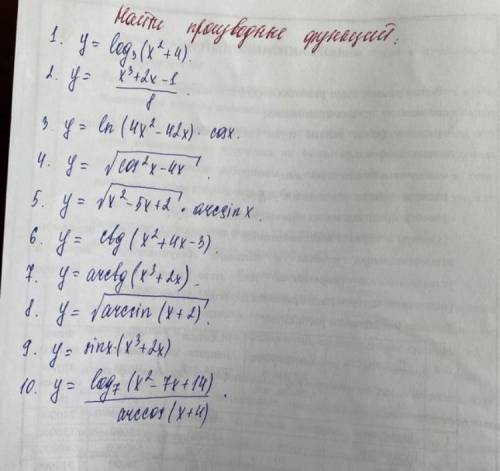 Найти производные функций:
1. y = log₃(x²+4).
2. y = (x³+2x-1)/8.
3. y = ln(4x²-42x)·cosx.
4. y = √(cos²x-4x).
5. y = √(x²-5x+2)·arcsinx.
6. y = ctg(x²+4x-3).
7. y = arcctg(x³+2x).
8. y = √(arcsin(x+2)).
9. y = sinx·(x³+2x)
10. y = log₇(x²-7x+14)/arccos(x+4).